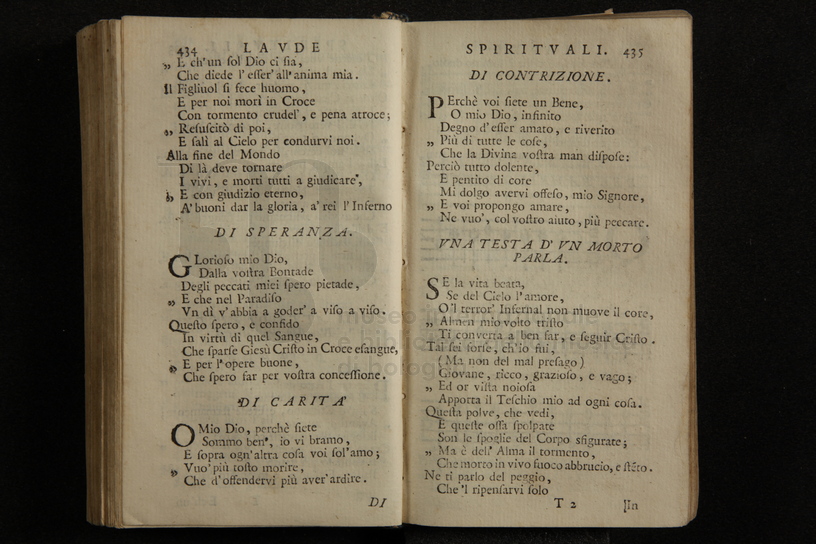 434 LAVDE
„ E ch' un ſol Dio ci ſia,
Che diede l' eſſer' all' anima mia.
Il Figliuol ſi fece huomo,
E per noi morì in Croce
Con tormento crudel', e pena atroce;
„ Reſuſcitò di poi,
E ſalì al Cielo per condurvi noi.
Alla fine del Mondo
Di là deve tornare
I vivi, e morti tutti a giudicare',
„ E con giudizio eterno,
A' buoni dar la gloria, a' rei l' Inferno
DI SPERANZA.
GLorioſo mio Dio,
Dalla voſtra Bontade
Degli peccati miei ſpero pietade,
„ E che nel Paradiſo
Vn dì v' abbia a goder' a viſo a viſo.
Queſto ſpero, e confido
In virtù di quel Sangue,
Che ſparſe Gieſù Criſto in Croce eſangue,
„ E per l' opere buone,
Che ſpero far per voſtra conceſſione.
DI CARITA'
O Mio Dio, perchè ſiete
Sommo ben', io vi bramo,
E ſopra ogn' altra coſa voi ſol' amo;
„ Vuo' più toſto morire,
Che d' offendervi più aver' ardire.
DI
SPIRITVALI. 435
DI CONTRIZIONE.
PErchè voi ſiete un Bene,
O mio Dio, infinito
Degno d' eſſer amato, e riverito
„ Più di tutte le coſe,
Che la Divina voſtra man diſpoſe:
Perciò tutto dolente,
E pentito di core
Mi dolgo avervi offeſo, mio Signore,
„ E voi propongo amare,
Ne vuo', col voſtro aiuto, più peccare.
VNA TESTA D' VN MORTO
PARLA.
SE la vita beata,
Se del Cielo l' amore,
O 'l terror' Infernal non muove il core,
„ Almen mio volto triſto
Ti converta a ben far, e ſeguir Criſto.
Tal ſei forſe, ch' io fui,
(Ma non del mal preſago)
Giovane, ricco, grazioſo, e vago;
„ Ed or viſta noioſa
Apporta il Teſchio mio ad ogni coſa.
Queſta polve, che vedi,
E queſte oſſa ſpolpate
Son le ſpoglie del Corpo sfigurate;
„ Ma è dell' Alma il tormento,
Che morto in vivo fuoco abbrucio, e ſtẽto.
Ne ti parlo del peggio,
Che 'l ripenſarvi ſolo
T 2 Jin